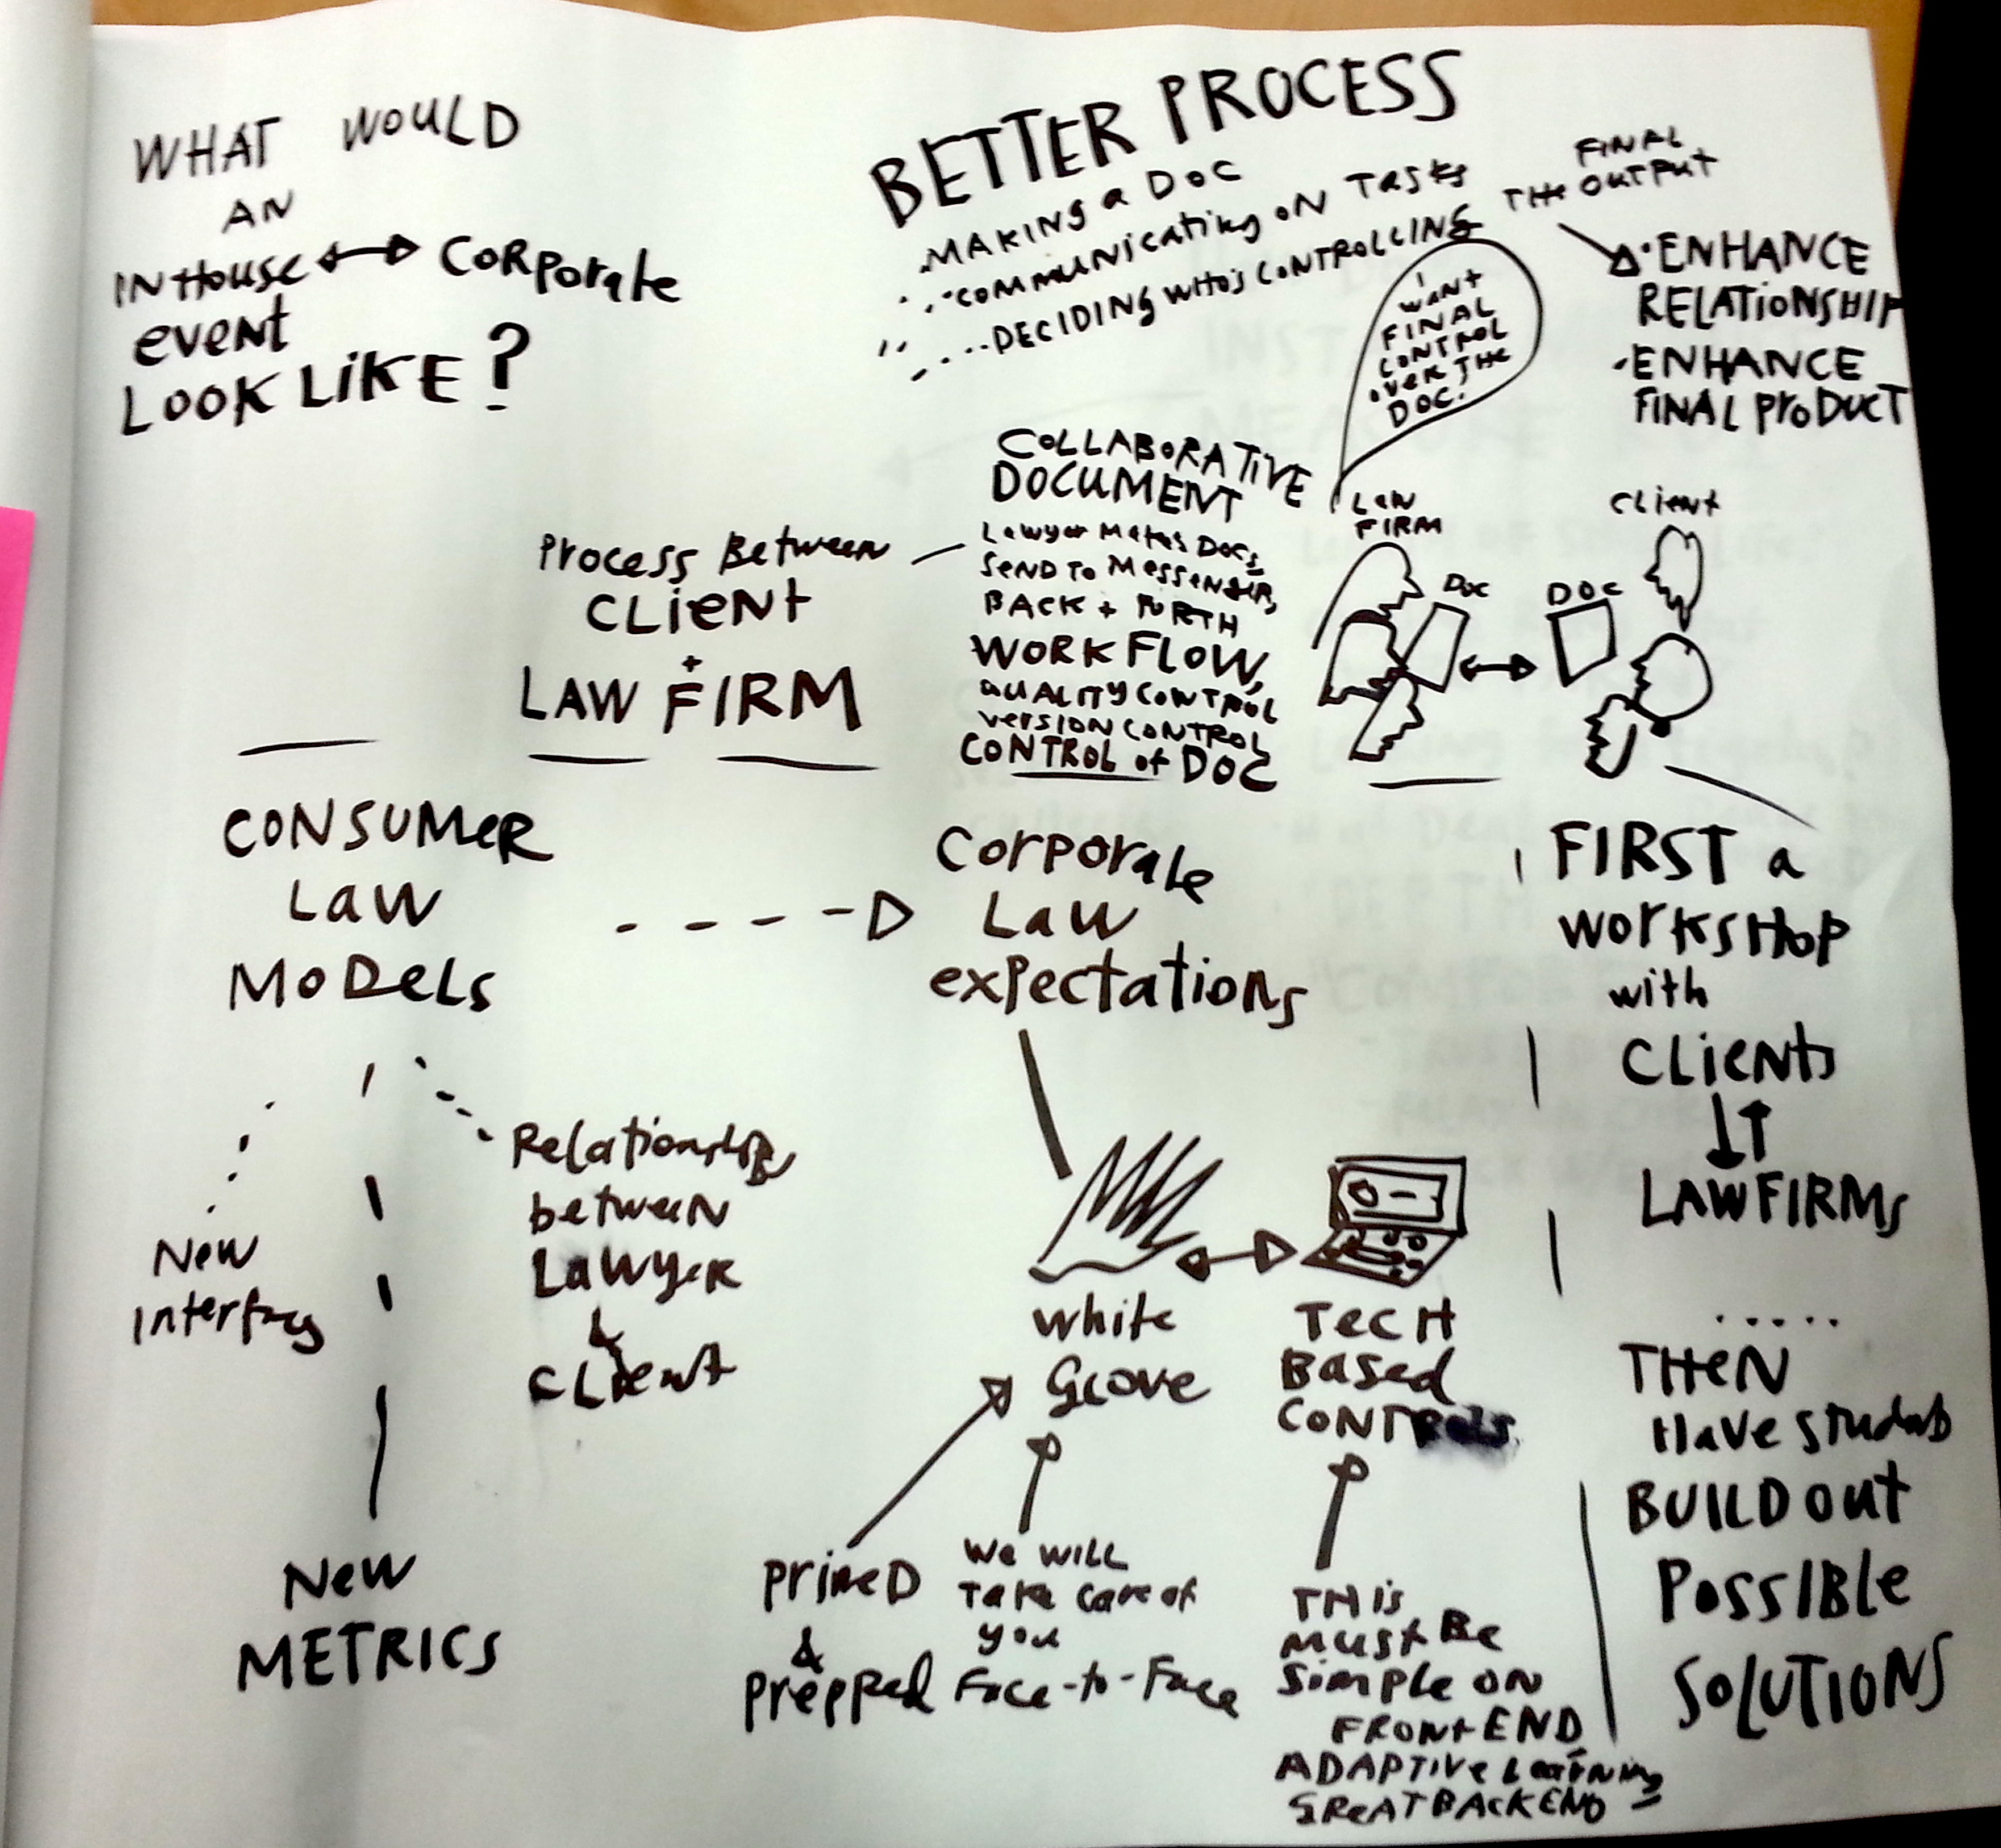 WHAT WOULD
AN
INHOUSE CORPorate
event
LOOK LIKE?
BETTER PROCESS
MAKING a DOC
COMMUNICATING ON TASKS
DECIDING WHO'S CONTROLLING
FINAL
THE OUTPUT
ENHANCE
RELATIONSHIP
ENHANCE
FINAL PRODUCT
I
WANT
FINAL
CONTROL
OVER THE
DOC.
Process Between
CLIENT
+
LAW FIRM
COLLABORATIVE
DOCUMENT
Lawyer Makes Docs,
SEND TO MESSENGER,
BACK + FORTH
WORKFLOW,
QUALITY CONTROL
VERSION CONTROL
CONTROL of DOC
LAW
FIRM
DOC
DOC
CLIENT
CONSUMER
LAW
MODELS
New
Interfaces
Relationship
between
Lawyer
&
CLIENT
New
METRICS
Corporate
Law
expectations
White
GLOVE
TECH
BASED
CONTROLS
PRIMED
&
Prepped
We WILL
Take care of
you
Face-to-Face
THis
must Be
Simple on
FRONT END,
ADAPTIVE Learning
GREAT BACKEND
FIRST a
WORKSHOP
with
CLIENTS
LAWFIRMS
.....
THEN
HAVE students
BUILD OUT
POSSIBLE
SOLUTIONS